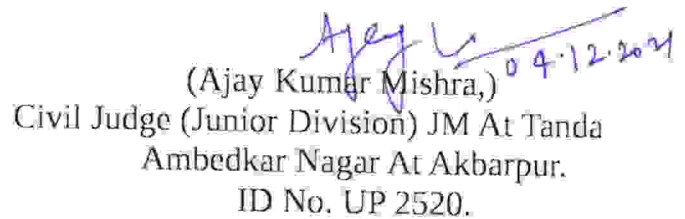 Ajay
04.12.2021
(Ajay Kumar Mishra,)
Civil Judge (Junior Division) JM At Tanda
Ambedkar Nagar At Akbarpur.
ID No. UP 2520.